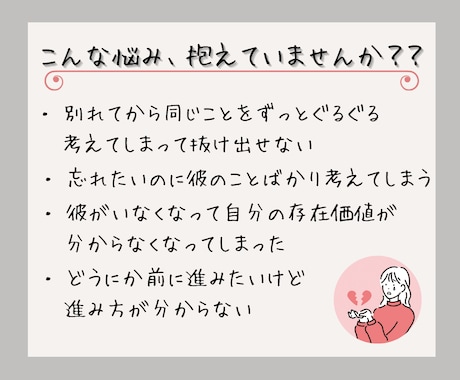 こんな悩み、抱えていませんか??
・別れてから同じことをずっとぐるぐる
考えてしまって抜け出せない
・忘れたいのに彼のことばかり考えてしまう
・彼がいなくなって自分の存在価値が
分からなくなってしまった
・どうにか前に進みたいけど
進み方が分からない